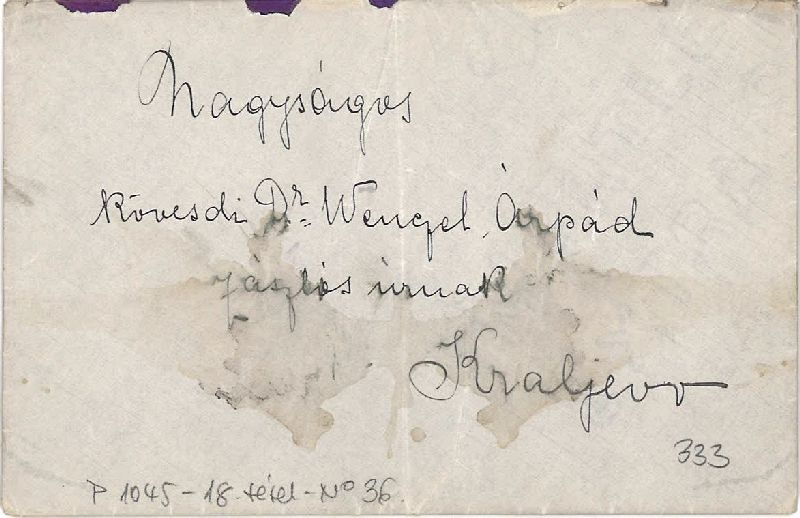 Nagyságos
Kövesdi Dr. Wenczel Árpád
zászlós úrnak
Kraljevo
333
P 1045 - 18. tétel - No 36.